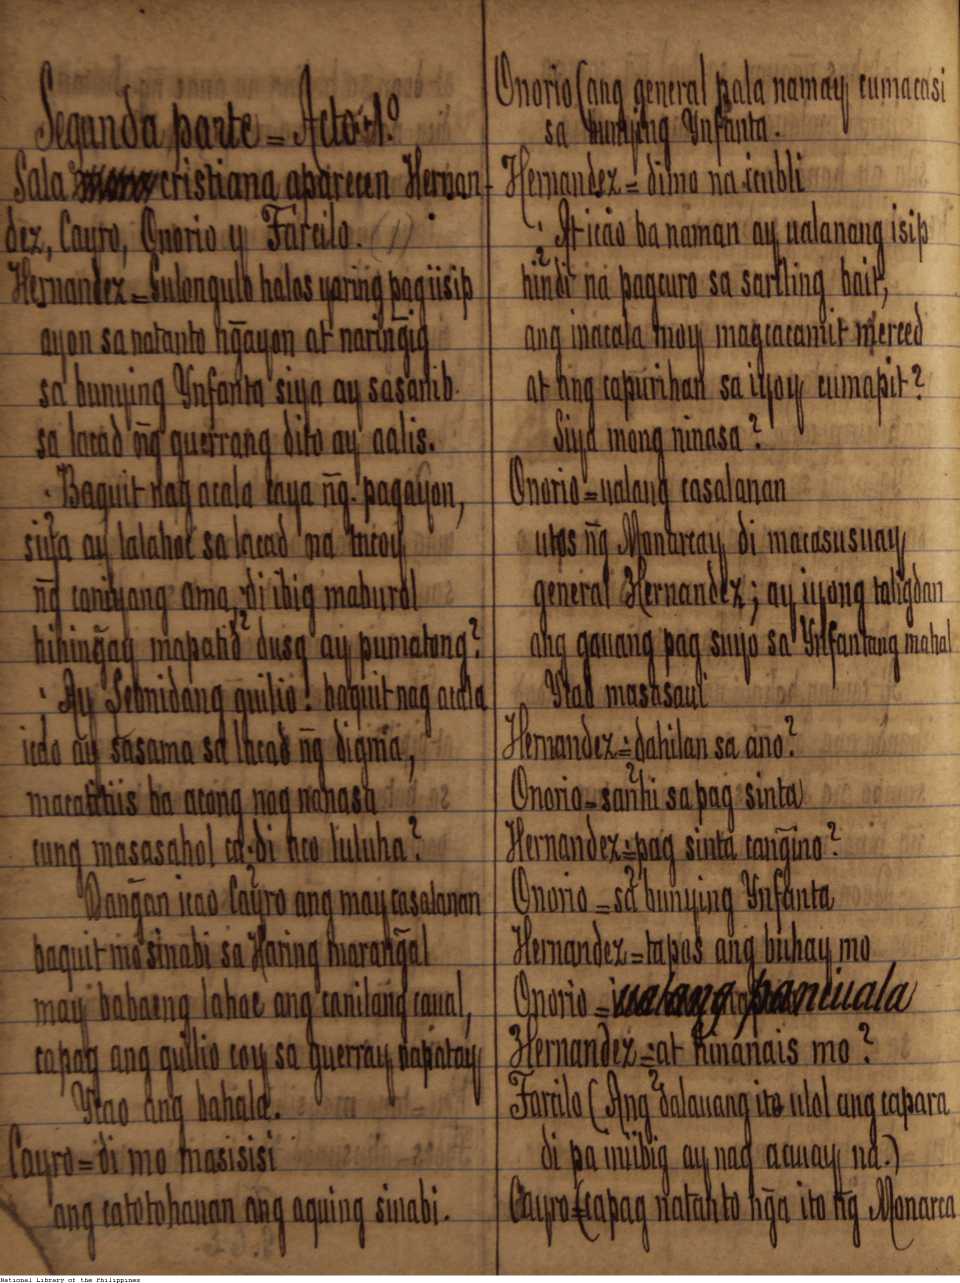 Segunda parte = Acto 1.º
Sala cristiana aparecen Hernan-
dez, Cayro, Onorio y Farcilo. (1)
Hernandez = Gulongulo halos yaring pagiisip
ayon sa natanto ng̃ayon at naring̃ig
sa bunying Ynfanta siya ay sasanib
sa lacad ñg guerrang dito ay aalis.
Baquit nag acala caya ñg pagayon,
siya ay lalahoc sa lacad na tucoy
ñg caniyang ama, di ibig mahurol
hihing̃ay mapatid dusa ay pumatong?
¡Ay Sebnidang guilio! baquit nag acala
icao ay sasama sa lacad ñg digma,
macatitiis ba acong nag nanasa
cung masasahol ca di aco luluha?
Dang̃an icao Cayro ang may casalanan
baquit mo sinabi sa Haring marang̃al
may babaeng lahoc ang canilang caual,
capag ang guilio coy sa guerray napatay
Ycao ang bahala.
Cayro = di mo masisisi
ang catotohanan ang aquing sinabi.
Onorio (ang general pala namay cumacasi
sa bunying Ynfanta.
Hernandez = dimo na icubli
¿At icao ba naman ay ualanang isip
hindi na pagcuro sa sariling bait,
ang inacala moy magcacamit merced
at ang capurihan sa iyoy cumapit?
Siya mong ninasa?
Onorio = ualang casalanan
utos ñg Monarcay di macasusuay
general Hernandez; ay iyong taligdan
ang gauang pag suyo sa Ynfantang mahal
Ycao masasaui
Hernandez = ¿dahilan sa ano?
Onorio = sanhi sa pag sinta
Hernandez = ¿pag sinta cang̃ino?
Onorio = sa bunying Ynfanta
Hernandez = tapos ang buhay mo
Onorio = ualang paniuala
Hernandez = ¿at hinanais mo?
Farcilo (Ang dalauang ito ulol ang capara
di pa iniibig ay nag aauay na.)
Cayro = (capag natanto ng̃a ito ñg Monarca
National Library of the Philippines